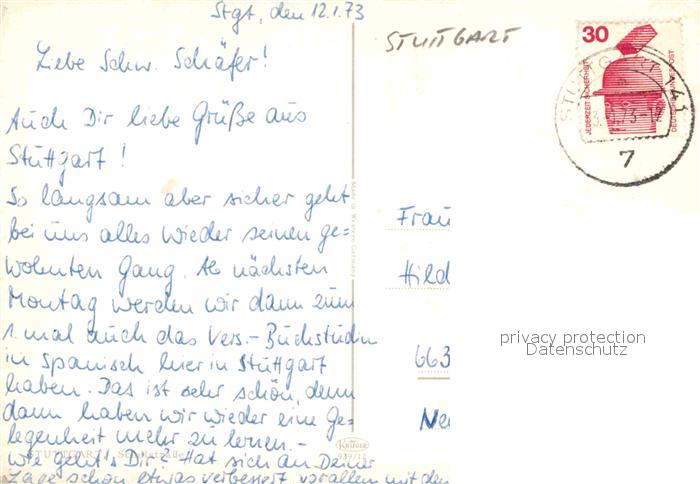 Stgt, den 12.1.73
Liebe Schw. Schäfer!
Auch Dir liebe Grüße aus
Stuttgart!
So langsam aber sicher geht
bei uns alles wieder seinen ge=
wohnten Gang. Ab nächsten
Montag werden wir dann zum
1. mal auch das Vers.-Buchstudium
in Spanisch hier in Stuttgart
haben. Das ist sehr schön, denn
dann haben wir wieder eine Ge=
legenheit mehr zu lernen.-
Wie geht's Dir? Hat sich an Deiner
Lage schon etwas verbessert vorallem mit den
STUTTGART
30
JEDERZEIT SICHERHEIT
STUTTGART 141
7
Frau
Hild
663
Neu
privacy protection
Datenschutz
KRÜGER
STUTTGART